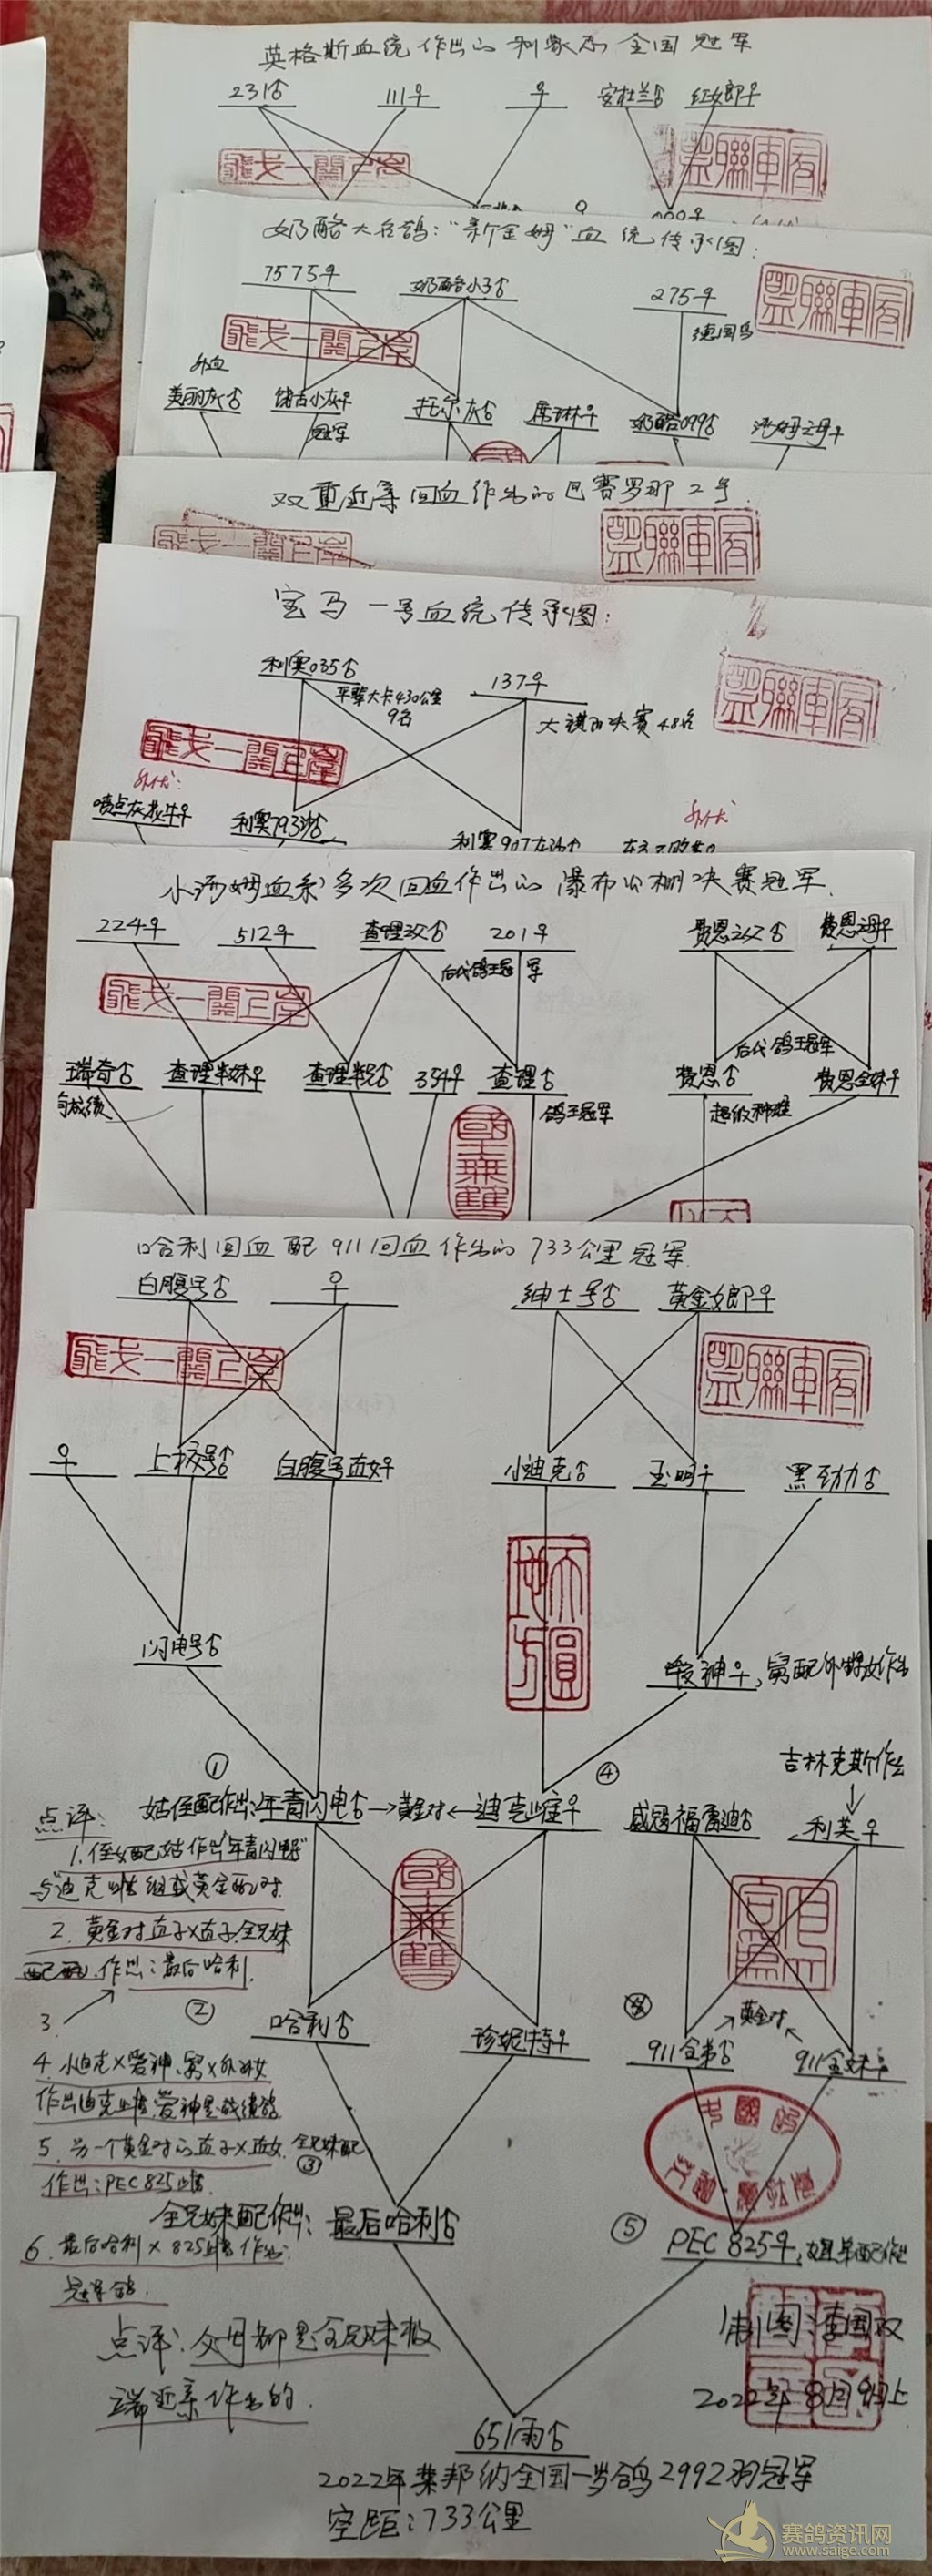 英格斯血统作出的利蒙尔全国冠军
231♂ 111♀ ♀ 安杜兰♂ 红女郎♀
奶酪大名鸽:"新金姆"血统传承图:
7575♀ 奶酪小子♂ 275♀
德国鸟
外血
美丽灰♂ 储古小灰♀ 托尔灰♂ 席琳♀ 奶酪099♂ 汤姆之母♀
冠军
双重近亲回血作出的巴赛罗那2号.
宝马一号血统传承图:
利奥035♂ 137♀
平辈大卡430公里
9名
大祺决赛48名
外代:
喷点灰花牛♀ 利奥793沙♂
利奥907左沙♂
外代
小汤姆血系多次回血作出的瀑布公棚决赛冠军.
224♀ 512♀ 查理之父♂ 201♀ 费恩之父♂ 费恩之母♀
后代鸽王冠军
后代鸽王冠军
瑞奇♂ 查理半妹♀ 查理半兄♂ 354♀ 查理♂ 费恩♂ 费恩全妹♀
有成绩 鸽王冠军 超级种雄
國士無雙
哈利回血配911回血作出的733公里冠军.
白腹号♂ ♀ 绅士号♂ 黄金女郎♀
♀ 上校号♂ 白腹号直女♀ 小迪克♂ 玉明♀ 黑劲力♂
天圓地方
闪电号♂
爱神♀,舅配外甥女作出
① ④ 吉林克斯作出
点评: 姑侄配作出:年青闪电♂→黄金对←迪克雌♀ 威冠福雷迪♂ 利芙♀
1.侄女配姑作出"年青闪电"
与"迪克雌"组成黄金配对.
國士無雙
2.黄金对直子×直子全兄妹
配.作出:最后哈利.
3.
② 哈利♂ 珍妮特♀ 黄金对
911全弟♂ 911全妹♀
4.小迪克×爱神.舅×外甥女
作出迪克雌.爱神是成绩鸽
5.另一个黄金对的直子×直女.全兄妹配
作出:PEC825雌. ③
全兄妹配作出:最后哈利♂
⑤ PEC 825♀
6.最后哈利×825雌作出:
冠军鸽.
点评:父母都是全兄妹极
端近亲作出的.
制图:李国双
2022年8月9日上
651雨♂
2022年莱邦纳全国一岁鸽2992羽冠军
空距:733公里
赛鸽资讯网
www.saige.com